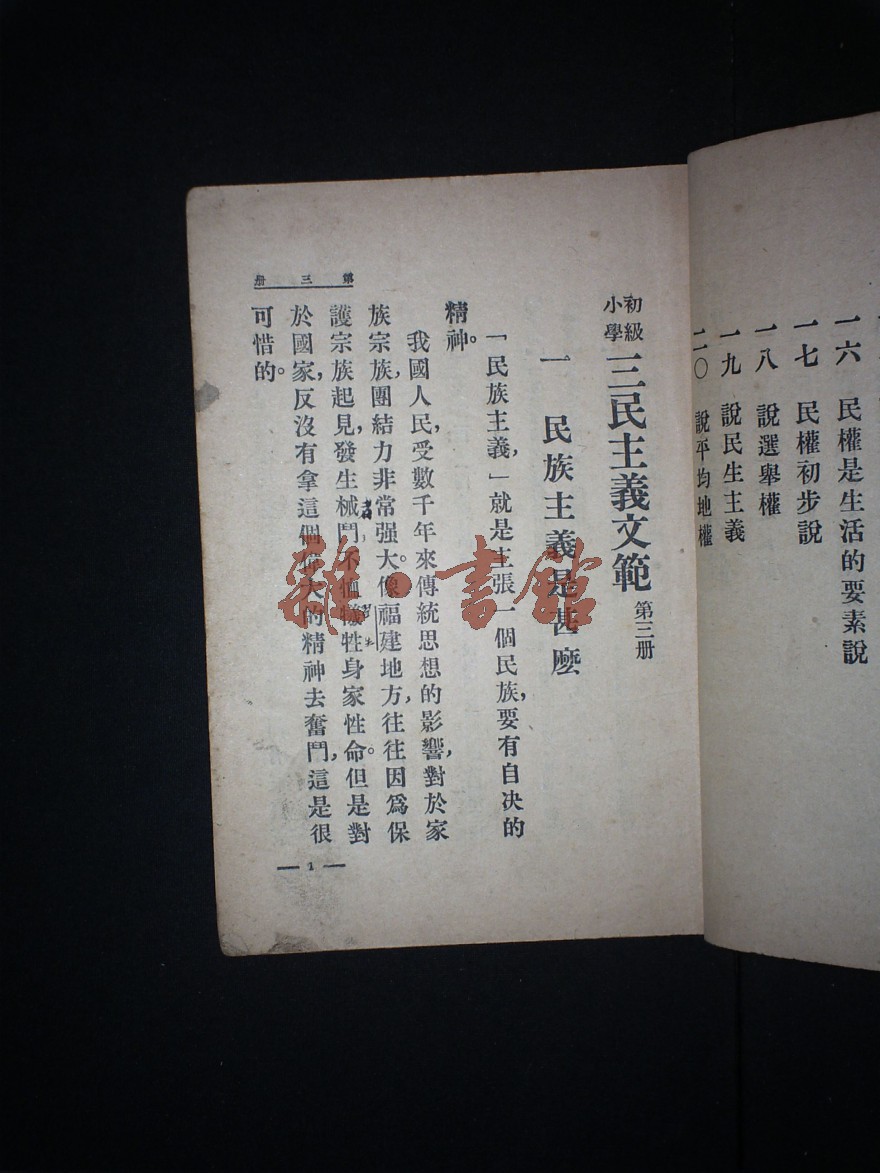 一六　民權是生活的要素說
一七　民權初步說
一八　說選舉權
一九　說民生主義
二〇　說平均地權
初級小學 三民主義文範 第三册
一　民族主義是甚麼
「民族主義，」就是主張一個民族，要有自决的
精神。
我國人民，受數千年來傳統思想的影響，對於家
族宗族，團結力非常强大。像福建地方，往往因爲保
護宗族起見，發生械鬥，不恤犧牲身家性命。但是對
於國家，反沒有拿這個偉大的精神去奮鬥，這是很
可惜的。
第三册
— 1 —
雜·書館